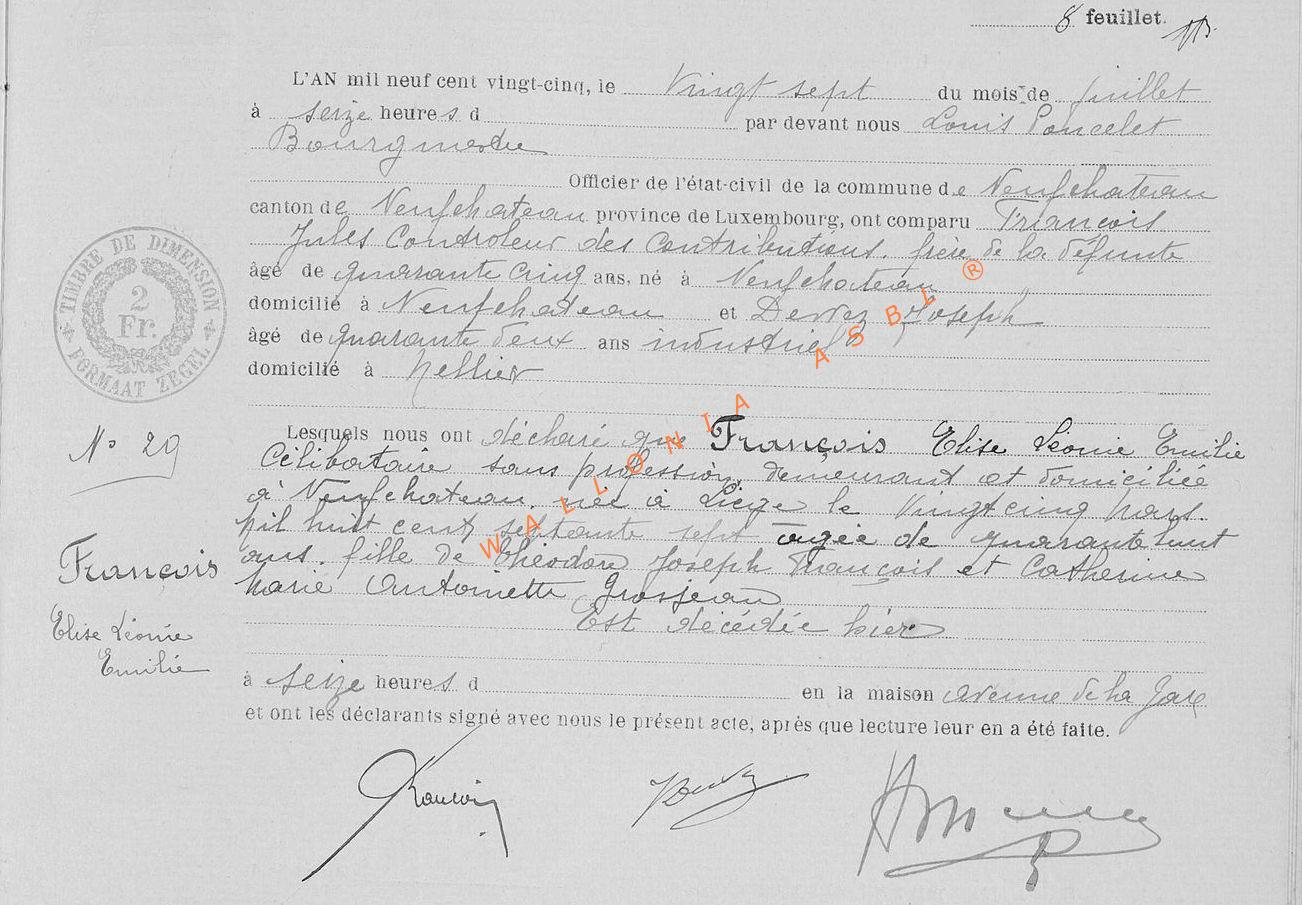 8 feuillet.
L'AN mil neuf cent vingt-cinq, le Vingt sept du mois de juillet
à seize heures d par devant nous Louis Poncelet
Bourgmestre
Officier de l'état-civil de la commune de Neufchateau
canton de Neufchateau province de Luxembourg, ont comparu François
Jules Controleur des Contributions. frère de la défunte
âgé de quarante cinq ans, né à Neufchateau
domicilié à Neufchateau et Dervez Joseph
âgé de quarante deux ans industriel
domicilié à Mellier
Lesquels nous ont déclaré que François Elise Léonie Emilie
Célibataire sans profession, demeurant et domiciliée
à Neufchateau. née à Liège le Vingt cinq mars.
mil huit cent septante sept agée de quarante huit
ans. fille de Théodore Joseph François et Catherine
Marie Antoinette Grosjean
Est décédée hier
à seize heures d en la maison avenue de la Gare
et ont les déclarants signé avec nous le présent acte, après que lecture leur en a été faite.
TIMBRE DE DIMENSION
2
Fr.
FORMAAT ZEGEL
N° 29
François
Elise Léonie
Emilie
WALLONIA ASBL ®